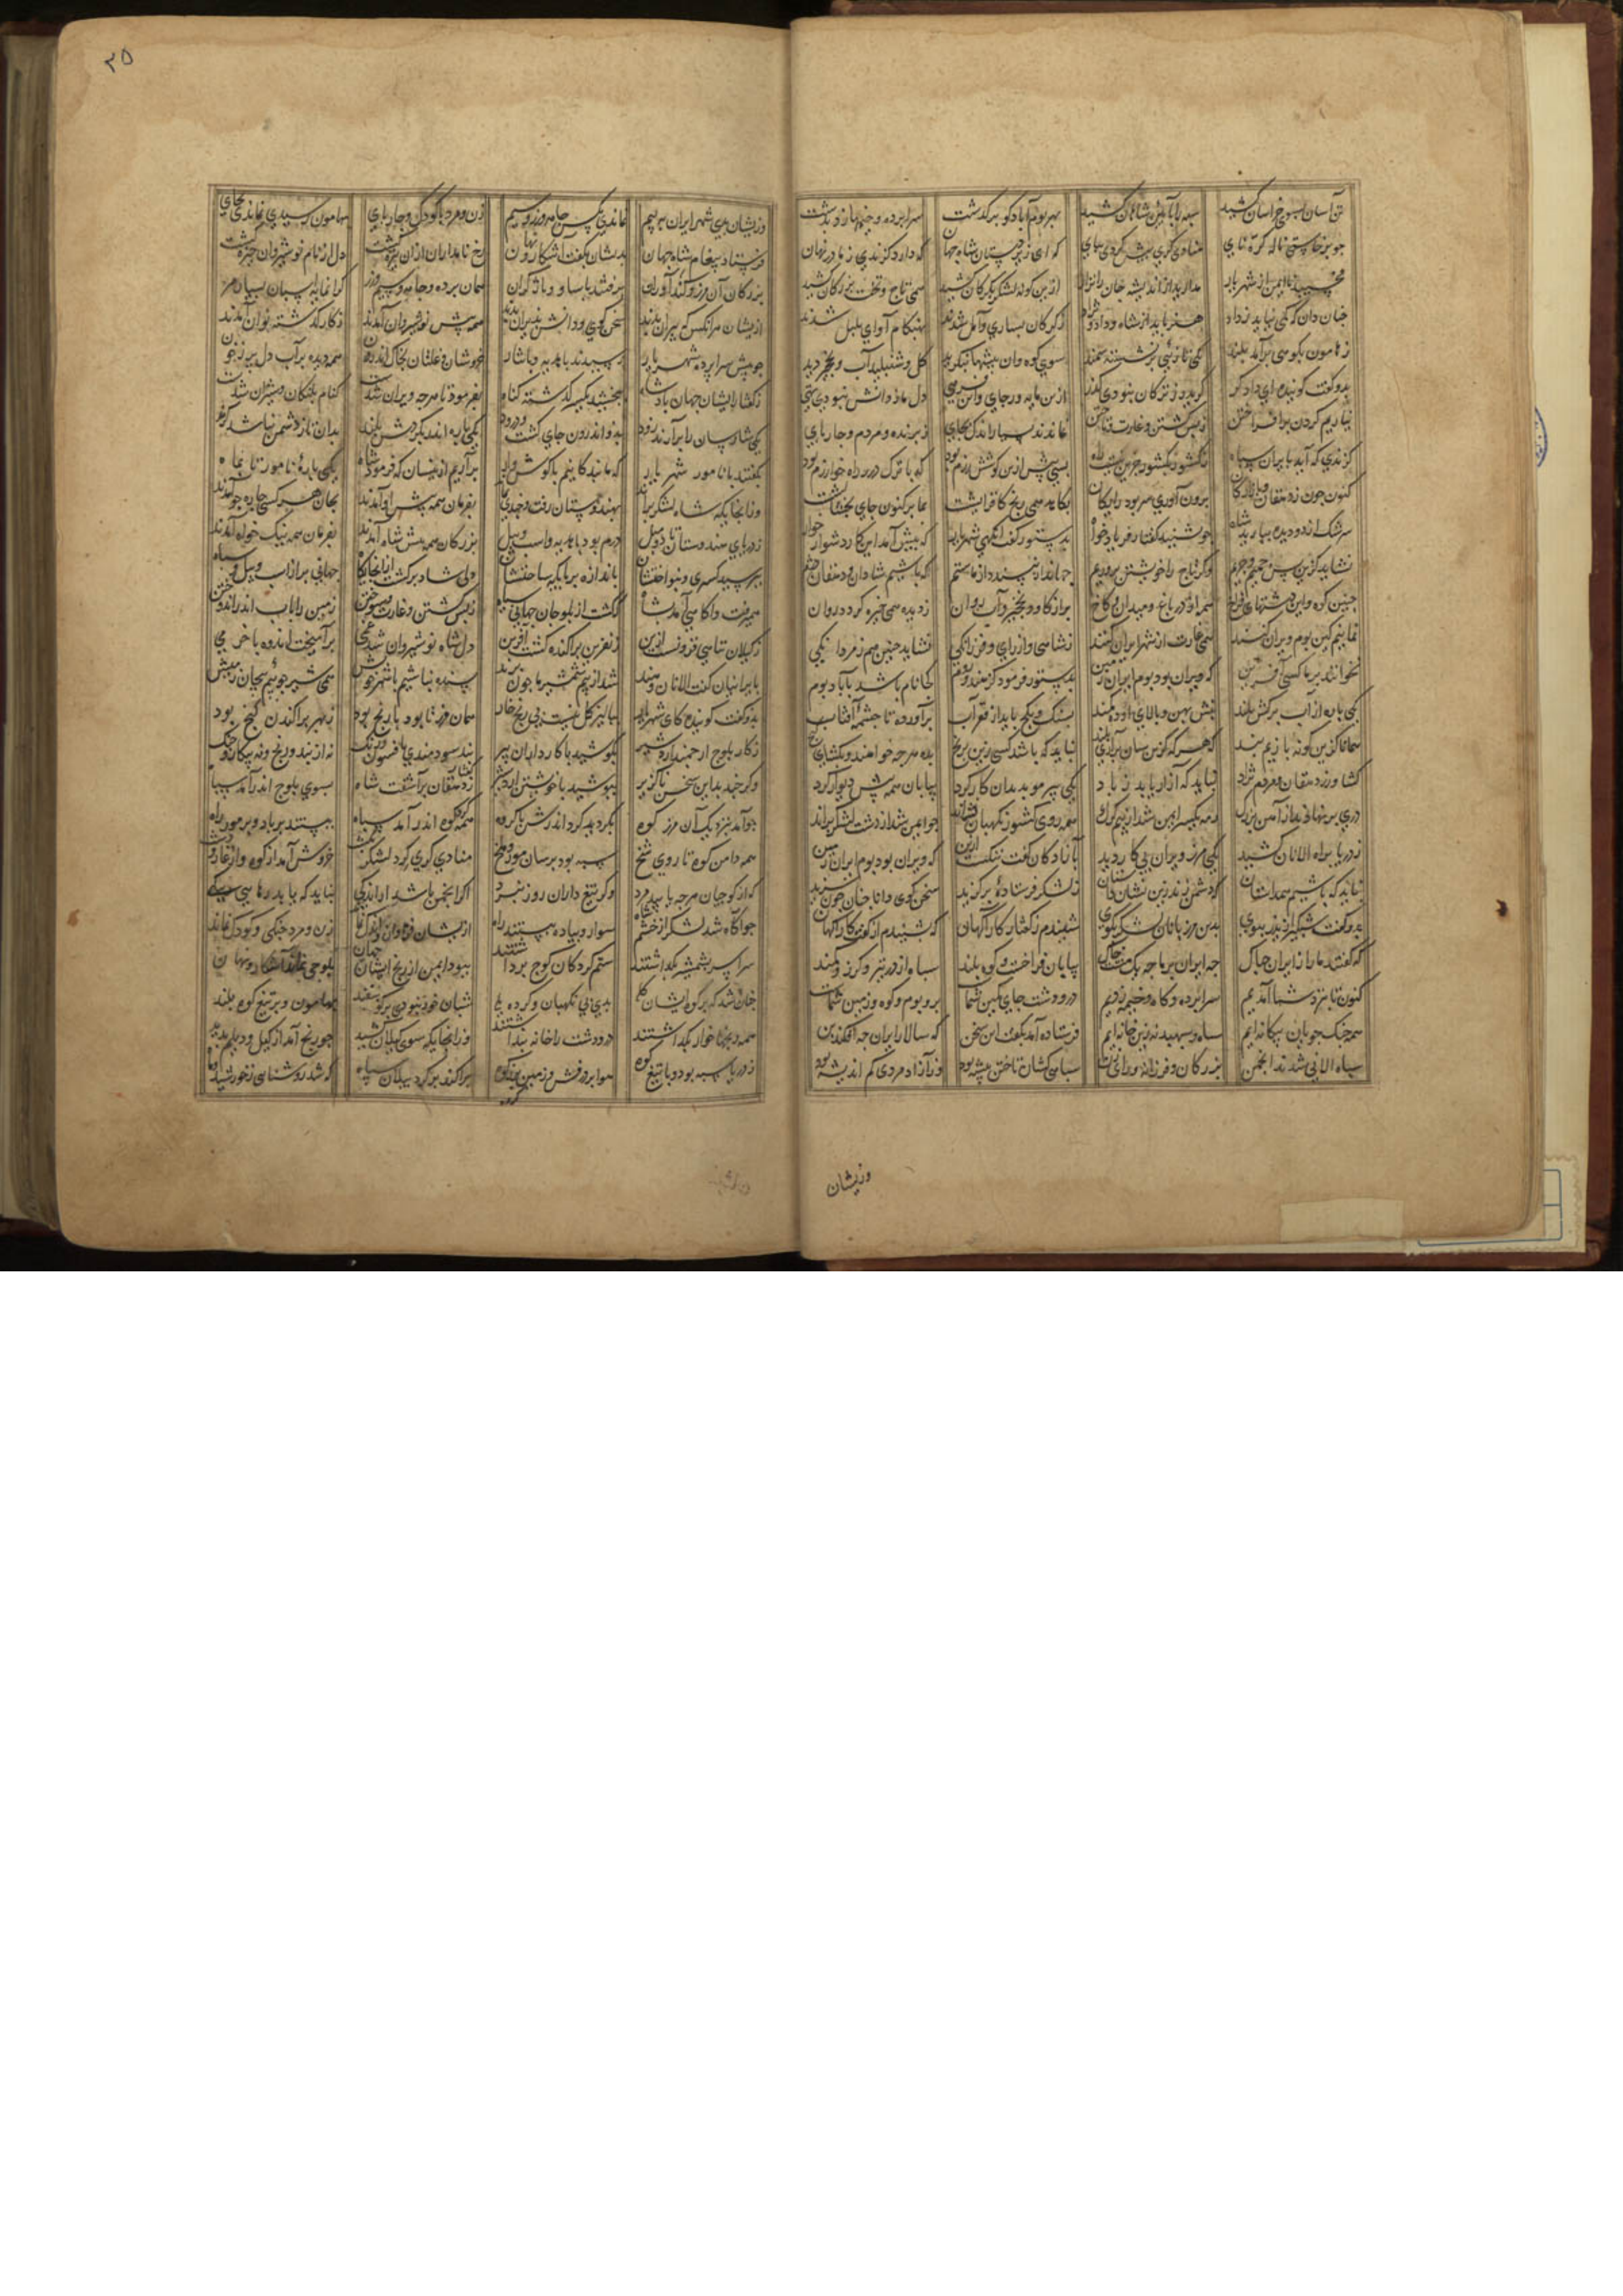 تن آسان بسوی خراسان کشید سپه را بآیین شاهان کشید بهر بوم آباد کو برگذشت سراپرده و خیمها زد بدشت
چو برخاستی ناله کره نای منادی گری پیش کردی بپای که ای زیردستان شاه جهان که دارد گزندی ز ما در نهان
مخسپید ناایمن از شهریار مدارید ازاندیشه جان را نزار ازین گونه لشکر بگرکان کشید همی تاج و تخت بزرگان کشید
چنان دان که کمی نباید ز داد هنر باید از شاه و داد و نژاد ز کرکان بساری و آمل شدند بهنگام آوای بلبل شدند
ز هامون بکوهی برآمد بلند یکی تازئی بر نشسته سمند سوی کوه وان بیشها بنگرید گل و سنبل و آب و نخچیر دید
بدو گفت گوینده ای دادگر گر ایدر ز ترکان نبودی گذر ازین مایه ور جای واین فرهی دل ما ز دانش نبودی تهی
نیاریم گردن برافراختن ز بس کشتن و غارت و تاختن نماندند بسیار و اندک بجای ز پرنده و مردم و چارپای
گزندی که آید بایران سپاه ز کشور بکشور جزین نیست راه بسی پیش ازین کوشش و رزم بود که با ترک در راه خوارزم بود
کنون چون ز دهقان و آزادگان برون آوری سر بود رایگان نکاهد همی رنج کافزایشست بما بر کنون جای بخشایشست
سرشک از دو دیده ببارید شاه چو بشنید گفتار فریادخواه بدستور گفت آنگهی شهریار که پیش آمد این کار دشوار خوار
نشاید کزین پس چمیم و چریم وگر تاج را خویشتن پروریم جهاندار نپسندد از ما ستم که باشیم شادان و دهقان دژم
چنین کوه واین دشتهای فراخ همه از در باغ و میدان و کاخ پر از گاو و نخچیر و آب روان ز دیده همی خیره گردد روان
نمانیم کین بوم ویران کنند همی غارت از شهر ایران کنند ز شاهی و از رای و فرزانگی نشاید چنین هم ز مردانگی
نخوانند بر ما کسی آفرین که ویران بود بوم ایران زمین بدستور فرمود کز هند و روم کجا نام باشد بآباد بوم
یکی باره از آب برکش بلند بنش پهن و بالای او ده کمند بسنگ و بگچ باید از قعر آب برآورده تا چشمه آفتاب
همانا کزین گونه با زیم بند که هر سو کزین سان برآری بلند نباید که باشد کسی زین برنج بده هر چه خواهند و بگشای گنج
کشاورز و دهقان و مردم نژاد نباید که آزار یابد ز باد یکی پیر موبد بدان کار کرد بیابان همه پیش دیوار کرد
دری بر نهاند از آهن بزرک رمه یکسر ایمن شد از بیم گرگ همه روی کشور نگهبان نشاند چو ایمن شد از دشت لشکر براند
ز دریا براه الانان کشید یکی مرز ویران بی کار دید بآزادگان گفت ننگست این که ویران بود بوم ایران زمین
نباید که باشیم همداستان که دشمن زند زین نشان داستان ز لشکر فرستاده برگزید سخن گوی و دانا چنان چون سزید
بدو گفت شبگیر از ایدر بپوی بدین مرزبانان لشکر بگوی شنیدم ز گفتار کارآگهان که شنیدم از گفت کارآگهان
که گفتند ما را ز ایران چه باک چه ایران بر ما چه یک مشت خاک بیابان فراخست و کوه بلند سپاه از در تیر و گرز و کمند
کنون تا بنزد شما آمدیم سراپرده و گاه و خیمه زدیم در و دشت جای کمین شما بر و بوم و کوه و زمین شماست
همه جنگجویان بیگانه‌ایم سپاه و سپهبد نه زین خانه‌ایم فرستاده آمد بگفت این سخن که سالار ایران چه افکند بن
سپاه الانی شدند انجمن بزرگان و فرزانه و رای زن سپاهی کشان تاختن پیشه بود وز آزاد مردی کم اندیشه بود
وزیشان
۲۵
وزیشان بدی شهر ایران به بیم نماندی بکس جامه و زر و سیم زن و مرد با کودک و چارپای بهامون رسیدی نماندی بجای
فرستاد پیغام شاه جهان بدیشان بگفت آشکار و نهان رخ نامداران ازان تیره گشت دل از نام نوشیروان خیره گشت
بزرگان آن مرز و گندآوران برفتند با ساو و باژ گران همان برده و جامه و سیم و زر گرانمایه اسپان بسیار مر
ازیشان هرآنکس که پیران بدند سخن گوی و دانش پذیران بدند همه پیش نوشیروان آمدند ز کار گذشته نوان آمدند
چو پیش سراپرده شهریار رسیدند با هدیه و با نثار خروشان و غلتان بخاک اندرون همه دیده پر آب دل پر ز خون
ز گفتار ایشان جهان پادشاه ببخشید یکسر گذشته گناه بفرمود تا هر چه ویران شدست کنام پلنگان و شیران شدست
یکی شارسان را برآرند زود بدو اندرون جای کشت و درود یکی باره اندر بگردش بلند بدان تا ز دشمن نباشد گزند
بگفتند با نامور شهریار که ما بندگانیم با گوشوار برآریم ازینسان که فرمود شاه یکی باره و نامور تا بماه
وزانجایگه شاه لشکر براند بهندوستان رفت و چندی بماند بفرمان همه پیش او آمدند بجان هر کسی چاره‌جو آمدند
ز دریای هندوستان تا دو میل درم بود با هدیه و اسپ و پیل بزرگان همه پیش شاه آمدند بفرمان همه نیک خواه آمدند
بپرسید کسری و بنواختشان باندازه بر پایگه ساختشان دلی شاد برگشت ازانجایگاه جهانی پر از اسب و پیل و سپاه
همی رفت و آگاهی آمد بشاه که گشت از بلوجان جهانی سیاه ز بس کشتن و غارت و سوختن زمین را بآب اندر انداختن
ز گیلان تباهی فزونست ازین ز نفرین پراکنده گشت آفرین دل شاه نوشیروان شد غمی برآمیخت اندوه با خرمی
بایرانیان گفت الانان و هند شد از بیم شمشیر ما چون پرند بسنده نباشیم با شهر خویش همی شیر جوییم بیجان ز میش
بدو گفت گوینده کای شهریار بپالیز گل نیست بی رنج خار همان مرز تا بود با رنج بود ز بهر پراکندن گنج بود
ز کار بلوج ارجمند اردشیر بکوشید با کاردانان پیر نبد سودمندی بافسون و رنگ نه از بند و رنج و نه پیکار و جنگ
وگرچند بد این سخن ناگزیر بپوشید با خویشتن اردشیر ز گفتار دهقان برآشفت شاه بسوی بلوج اندر آمد سپاه
چو آمد بنزدیک آن مرز کوه بگردید گرد اندرش با گروه همه گرد گوه اندر آمد سپاه ببستند بر باد و بر مور راه
همه دامن کوه تا روی شخ سپه بود بر سان مور و ملخ منادی گری گرد لشکر بگشت خروش آمد از کوه وز غار و دشت
که از کوجیان هر چه یابید خرد وگر تیغ داران روز نبرد اگر انجمن باشد ار اندکی نباید که یابد رهایی یکی
چو آگاه شد لشکر از خشم شاه سوار و پیاده ببستند راه ازیشان فراوان و اندک نماند زن و مرد جنگی و کودک نماند
سراسر بشمشیر بگذاشتند ستم کردگان کوج برداشتند ببود ایمن از رنج ایشان جهان بلوجی نماند آشکار و نهان
چنان شد که بر کوه ایشان گله بدی بی نگهبان و کرده یله شبان خود نبودی بر گوسفند بهامون و بر تیغ کوه بلند
همه رنجها خوار بگذاشتند در و دشت را خانه پنداشتند وزانجایگه سوی گیلان کشید چو رنج آمد از گیل و دیلم پدید
ز دریا سپه بود و با تیغ کوه هوا پر درفش و زمین پر گروه پراکند بر گرد گیلان سپاه که شد روشنایی ز خورشید و ماه